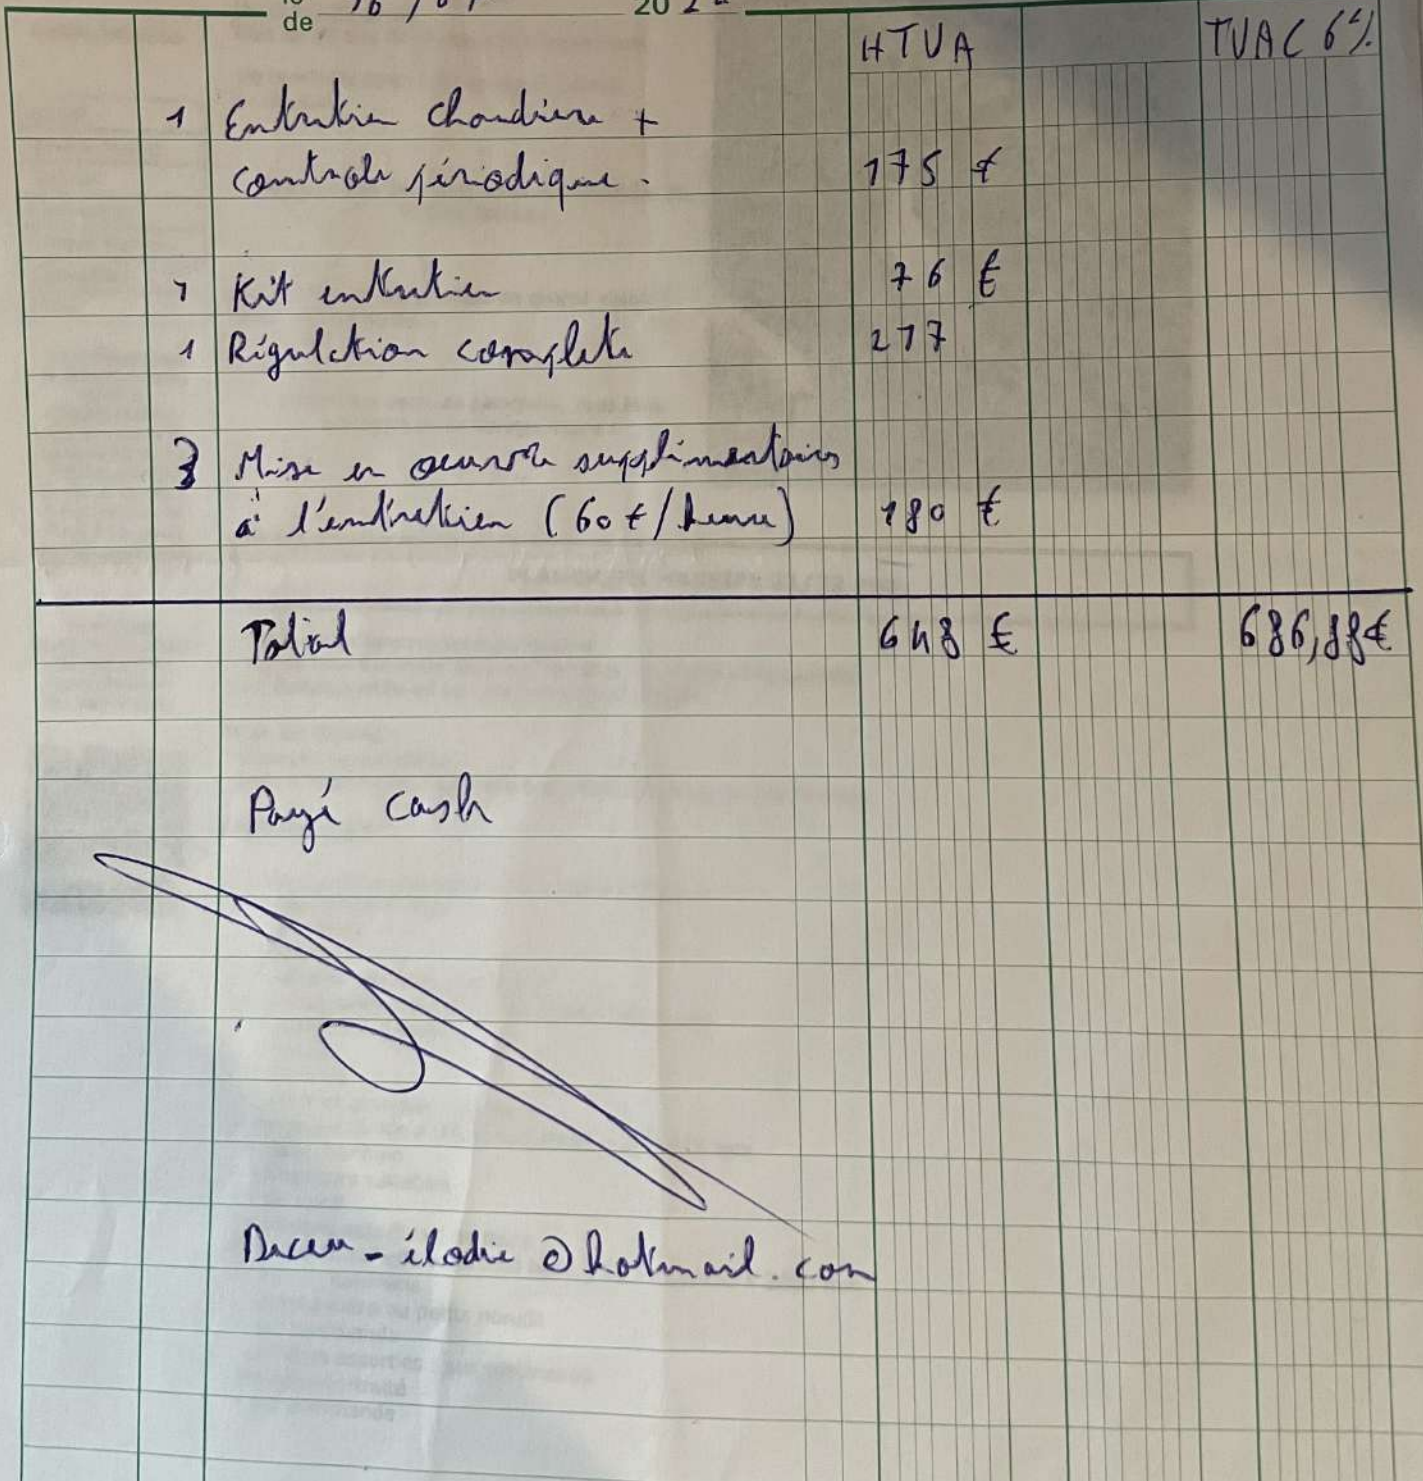 de 20
HTVA TVAC 6%
1 Entretien chaudière +
controle périodique. 175 €
1 Kit entretien 76 €
1 Régulation complete 217
3 Mise en oeuvre supplémentaires
à l'entretien (60€/heure) 180 €
Total 648 € 686,88€
Payé cash
-élodie@hotmail.com